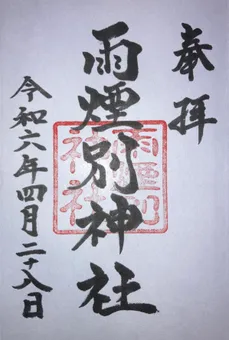 奉拝
雨煙別神社
雨煙別神社
令和六年四月二十八日